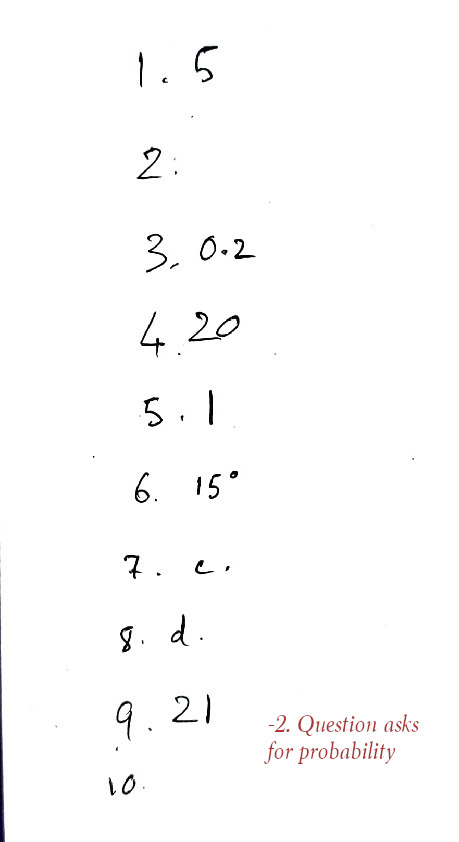 1. 5
2.
3. 0.2
4. 20
5. 1
6. 15°
7. c.
8. d.
9. 21
-2. Question asks
for probability
10.